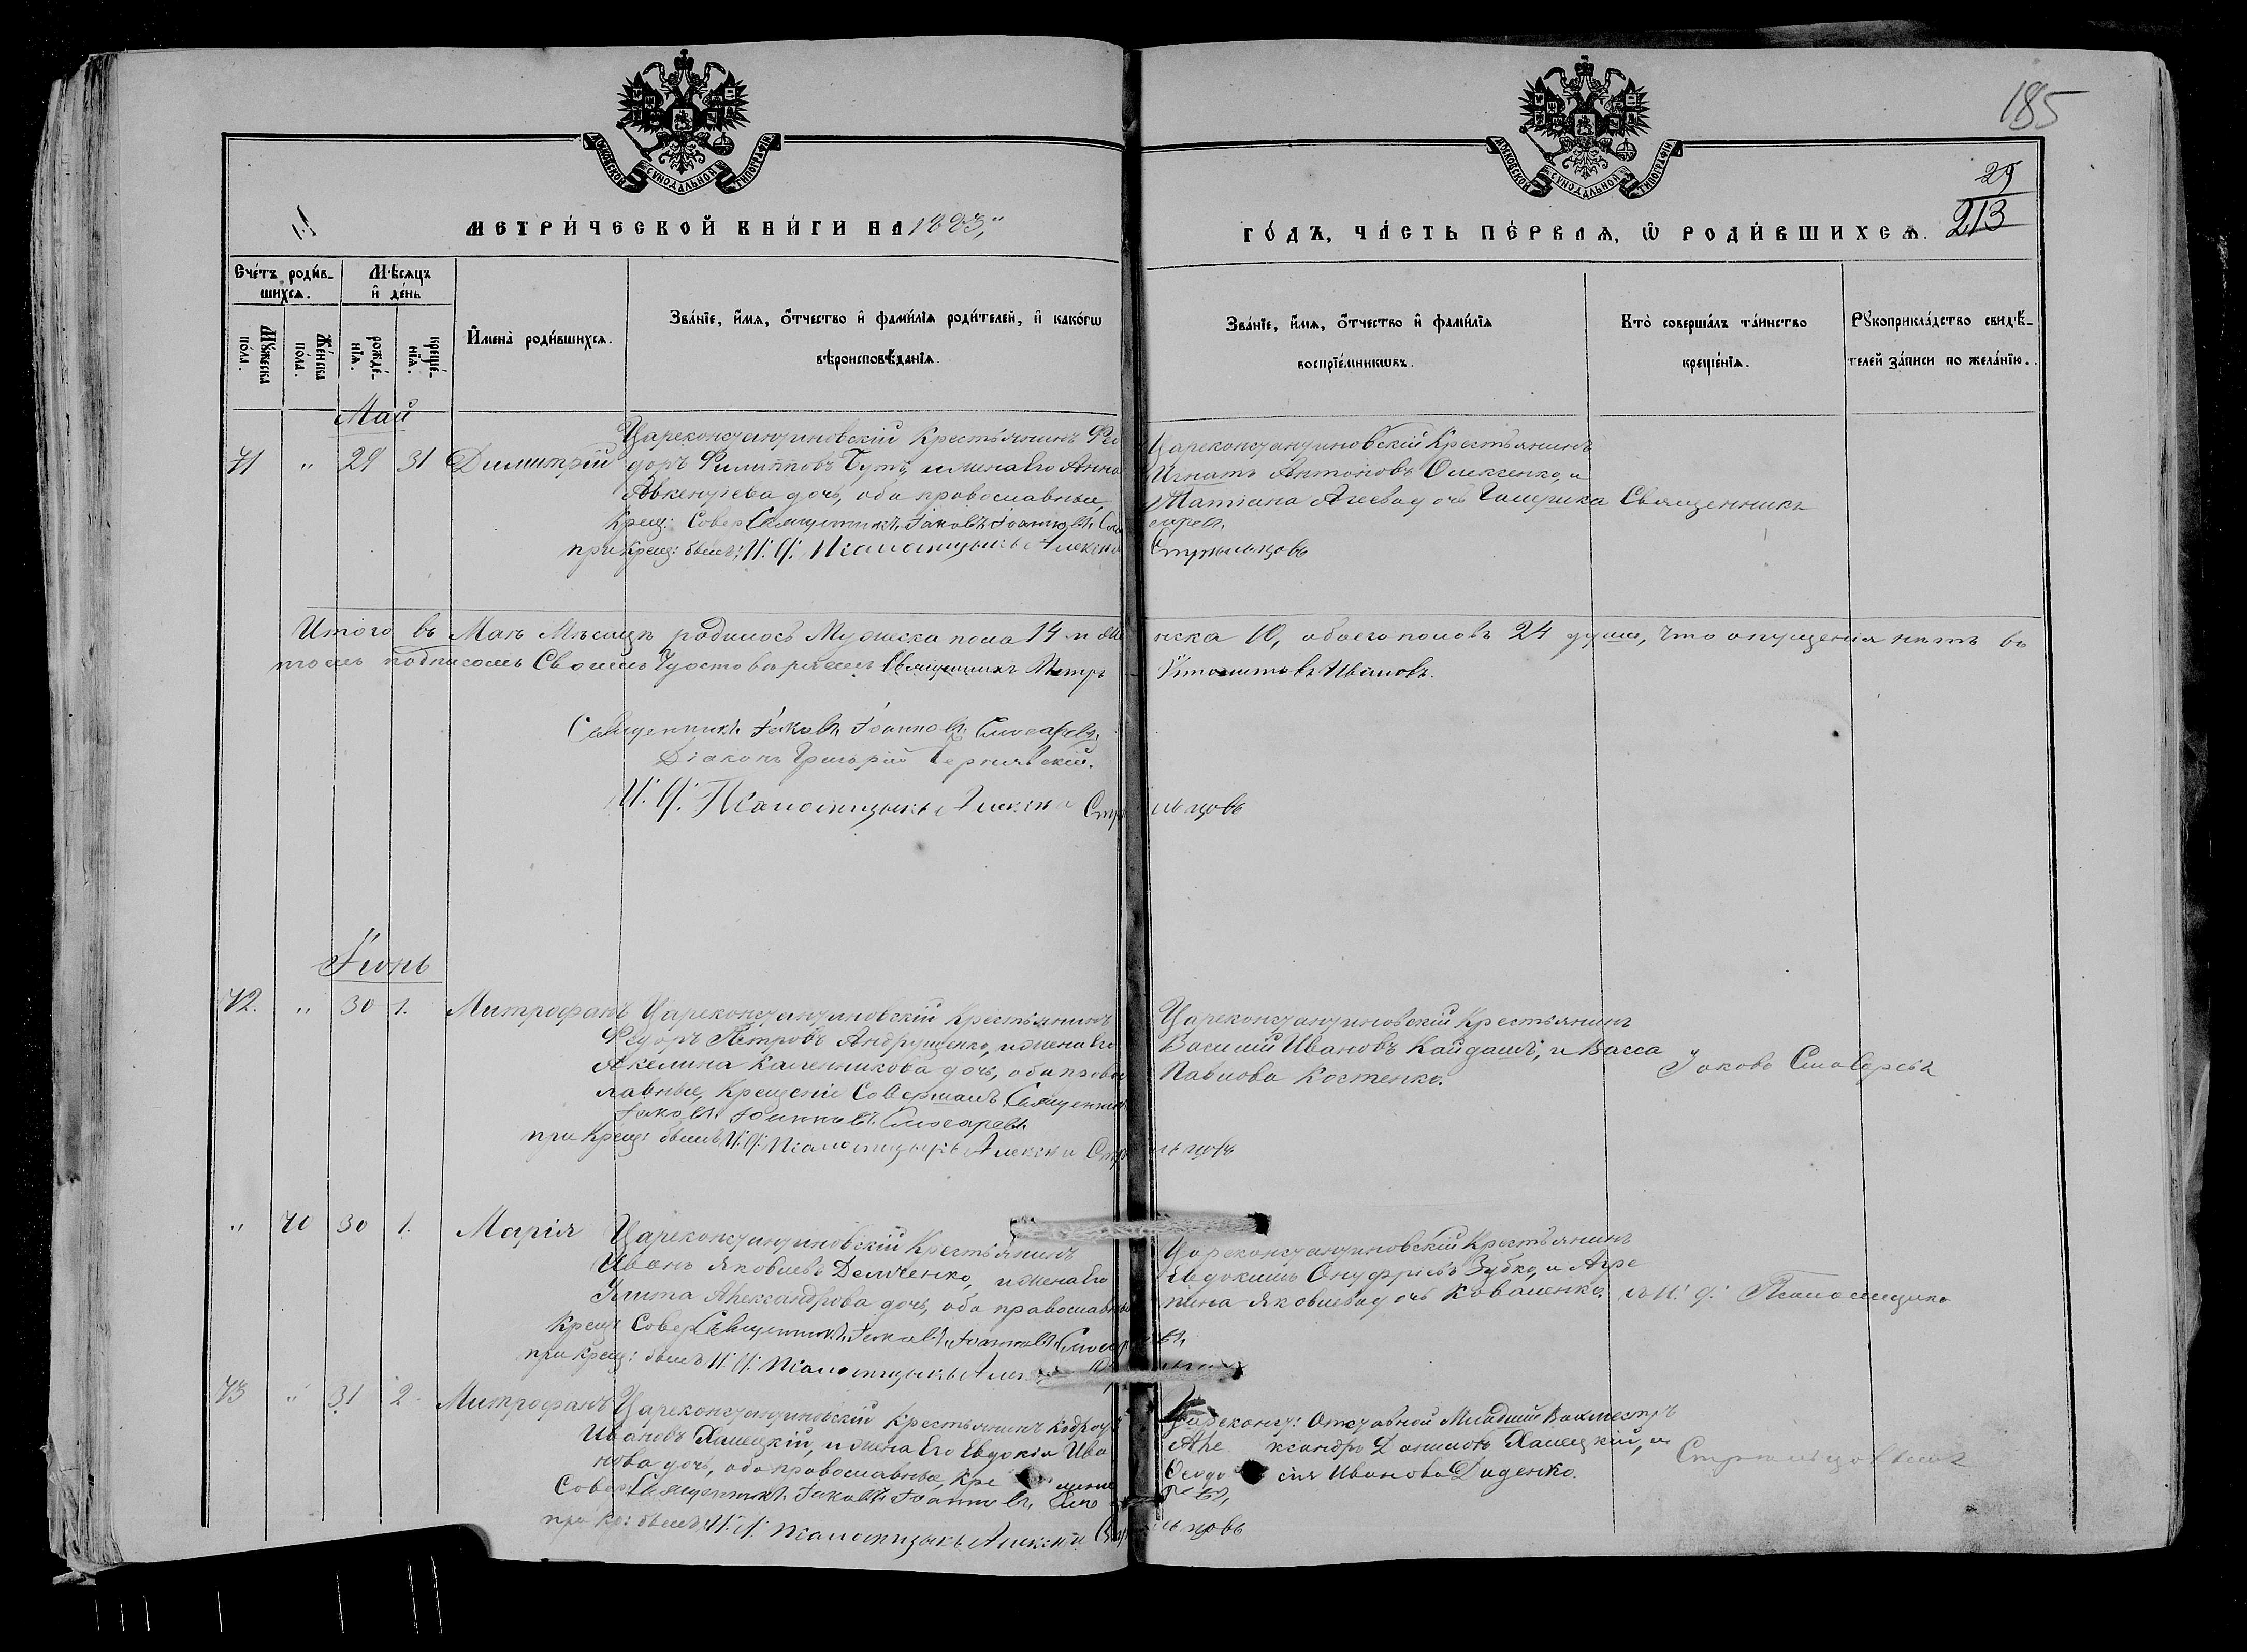 МОСКОВСКОЙ СѴНОДАЛЬНОЙ ТИПОГРАФІИ
МОСКОВСКОЙ СѴНОДАЛЬНОЙ ТИПОГРАФІИ
185
29
213
МЕТРИ́ЧЕСКОЙ КНИ́ГИ НА 1883,,
ГО́ДЪ, ЧА́СТЬ ПЕ́РВАЯ, Ѡ РОДИ́ВШИХСЯ.
Сче́тъ роди́в-
шихся.
Мѣ́сяцъ
и҆ де́нь
Мꙋ́жеска по́ла.
Же́нска по́ла.
рожде́-
нїя.
креще́-
нїя.
И҆мена̀ роди́вшихся.
Зва́нїе, и҆́мя, о҆́тчество и҆ фами́лїя роди́телей, и҆ како́гѡ
вѣроисповѣ́данїя.
Зва́нїе, и҆́мя, о҆́тчество и҆ фами́лїя
воспрїе́мникѡвъ.
Кто̀ соверша́лъ та́инство
креще́нїя.
Рꙋкоприкла́дство свидѣ́-
телей за́писи по жела́нїю.
Май
71 " 29 31 Димитрій
Цареконстантиновскій Крестьянинъ Фео
доръ Филипповъ Бутъ, и жена Его Анна
Авксентіева дочь, оба православные,
Крещ: Совер Священникъ Іаковъ Іоанновъ Слю
при Крещ: былъ: И. Ф. Псаломщыкъ Алексѣй
Цареконстантиновскій Крестьянинъ
Игнатъ Антоновъ Олексенко, и
Татіана Агеева дочь
Священникъ
саревъ
Стрѣльцовъ
Итого въ Маѣ Мѣсяцѣ родилось Мужеска пола 14 и Женска 10, обоего половъ 24 души, Что опущенія нѣтъ въ
томъ подписомъ Своимъ Удостовѣряемъ Священникъ Петръ Ивановъ.
Священникъ Іаковъ Іоанновъ Слюсаревъ.
Діаконъ Григорій Чернявскій.
И. Ф. Псаломщыкъ Алексѣй Стрѣльцовъ
Іюнь
72. " 30 1. Митрофанъ
Цареконстантиновскій Крестьянинъ
Федоръ Петровъ Андрущенко, и жена Его
Акелина Каленникова дочь, оба правос
лавные, Крещеніе Совершалъ Священникъ
Іаковъ Іоанновъ Слюсаревъ.
при Крещ: былъ И. Ф. Псаломщыкъ Алексѣй Стрѣльцовъ
Цареконстантиновскій Крестьянинъ
Василій Ивановъ Кайдашъ, и Васса
Павлова Костенко.
Іаковъ Слюсаревъ
" 70 30 1. Марія
Цареконстантиновскій Крестьянинъ
Иванъ Яковлевъ Демченко, и жена Его
Александрова дочь, оба православные
Крещ: Совер Священникъ Іаковъ Іоанновъ Слюсаревъ,
при Крещ: былъ И. Ф. Псаломщыкъ
Цареконстантиновскій Крестьянинъ
Евдокимъ Онуфріевъ Зубко, и Агре
пина Яковлева дочь Коваленко.
съ И. Ф. Псаломщико
73 " 31 2. Митрофанъ
Цареконстантиновскій Крестьянинъ
Ивановъ Халецкій, и жена Его Евдокія Ива
нова дочь, оба православные,
Совер Священникъ Іаковъ Іоанновъ
при Кр: былъ И. Ф. Псаломщыкъ Алексѣй Стрѣльцовъ
Цареконст: Отставной Младшій Вахместръ
Александръ Даниловъ Халецкій, и
Феодосія Иванова Диденко.
Стрѣльцовымъ